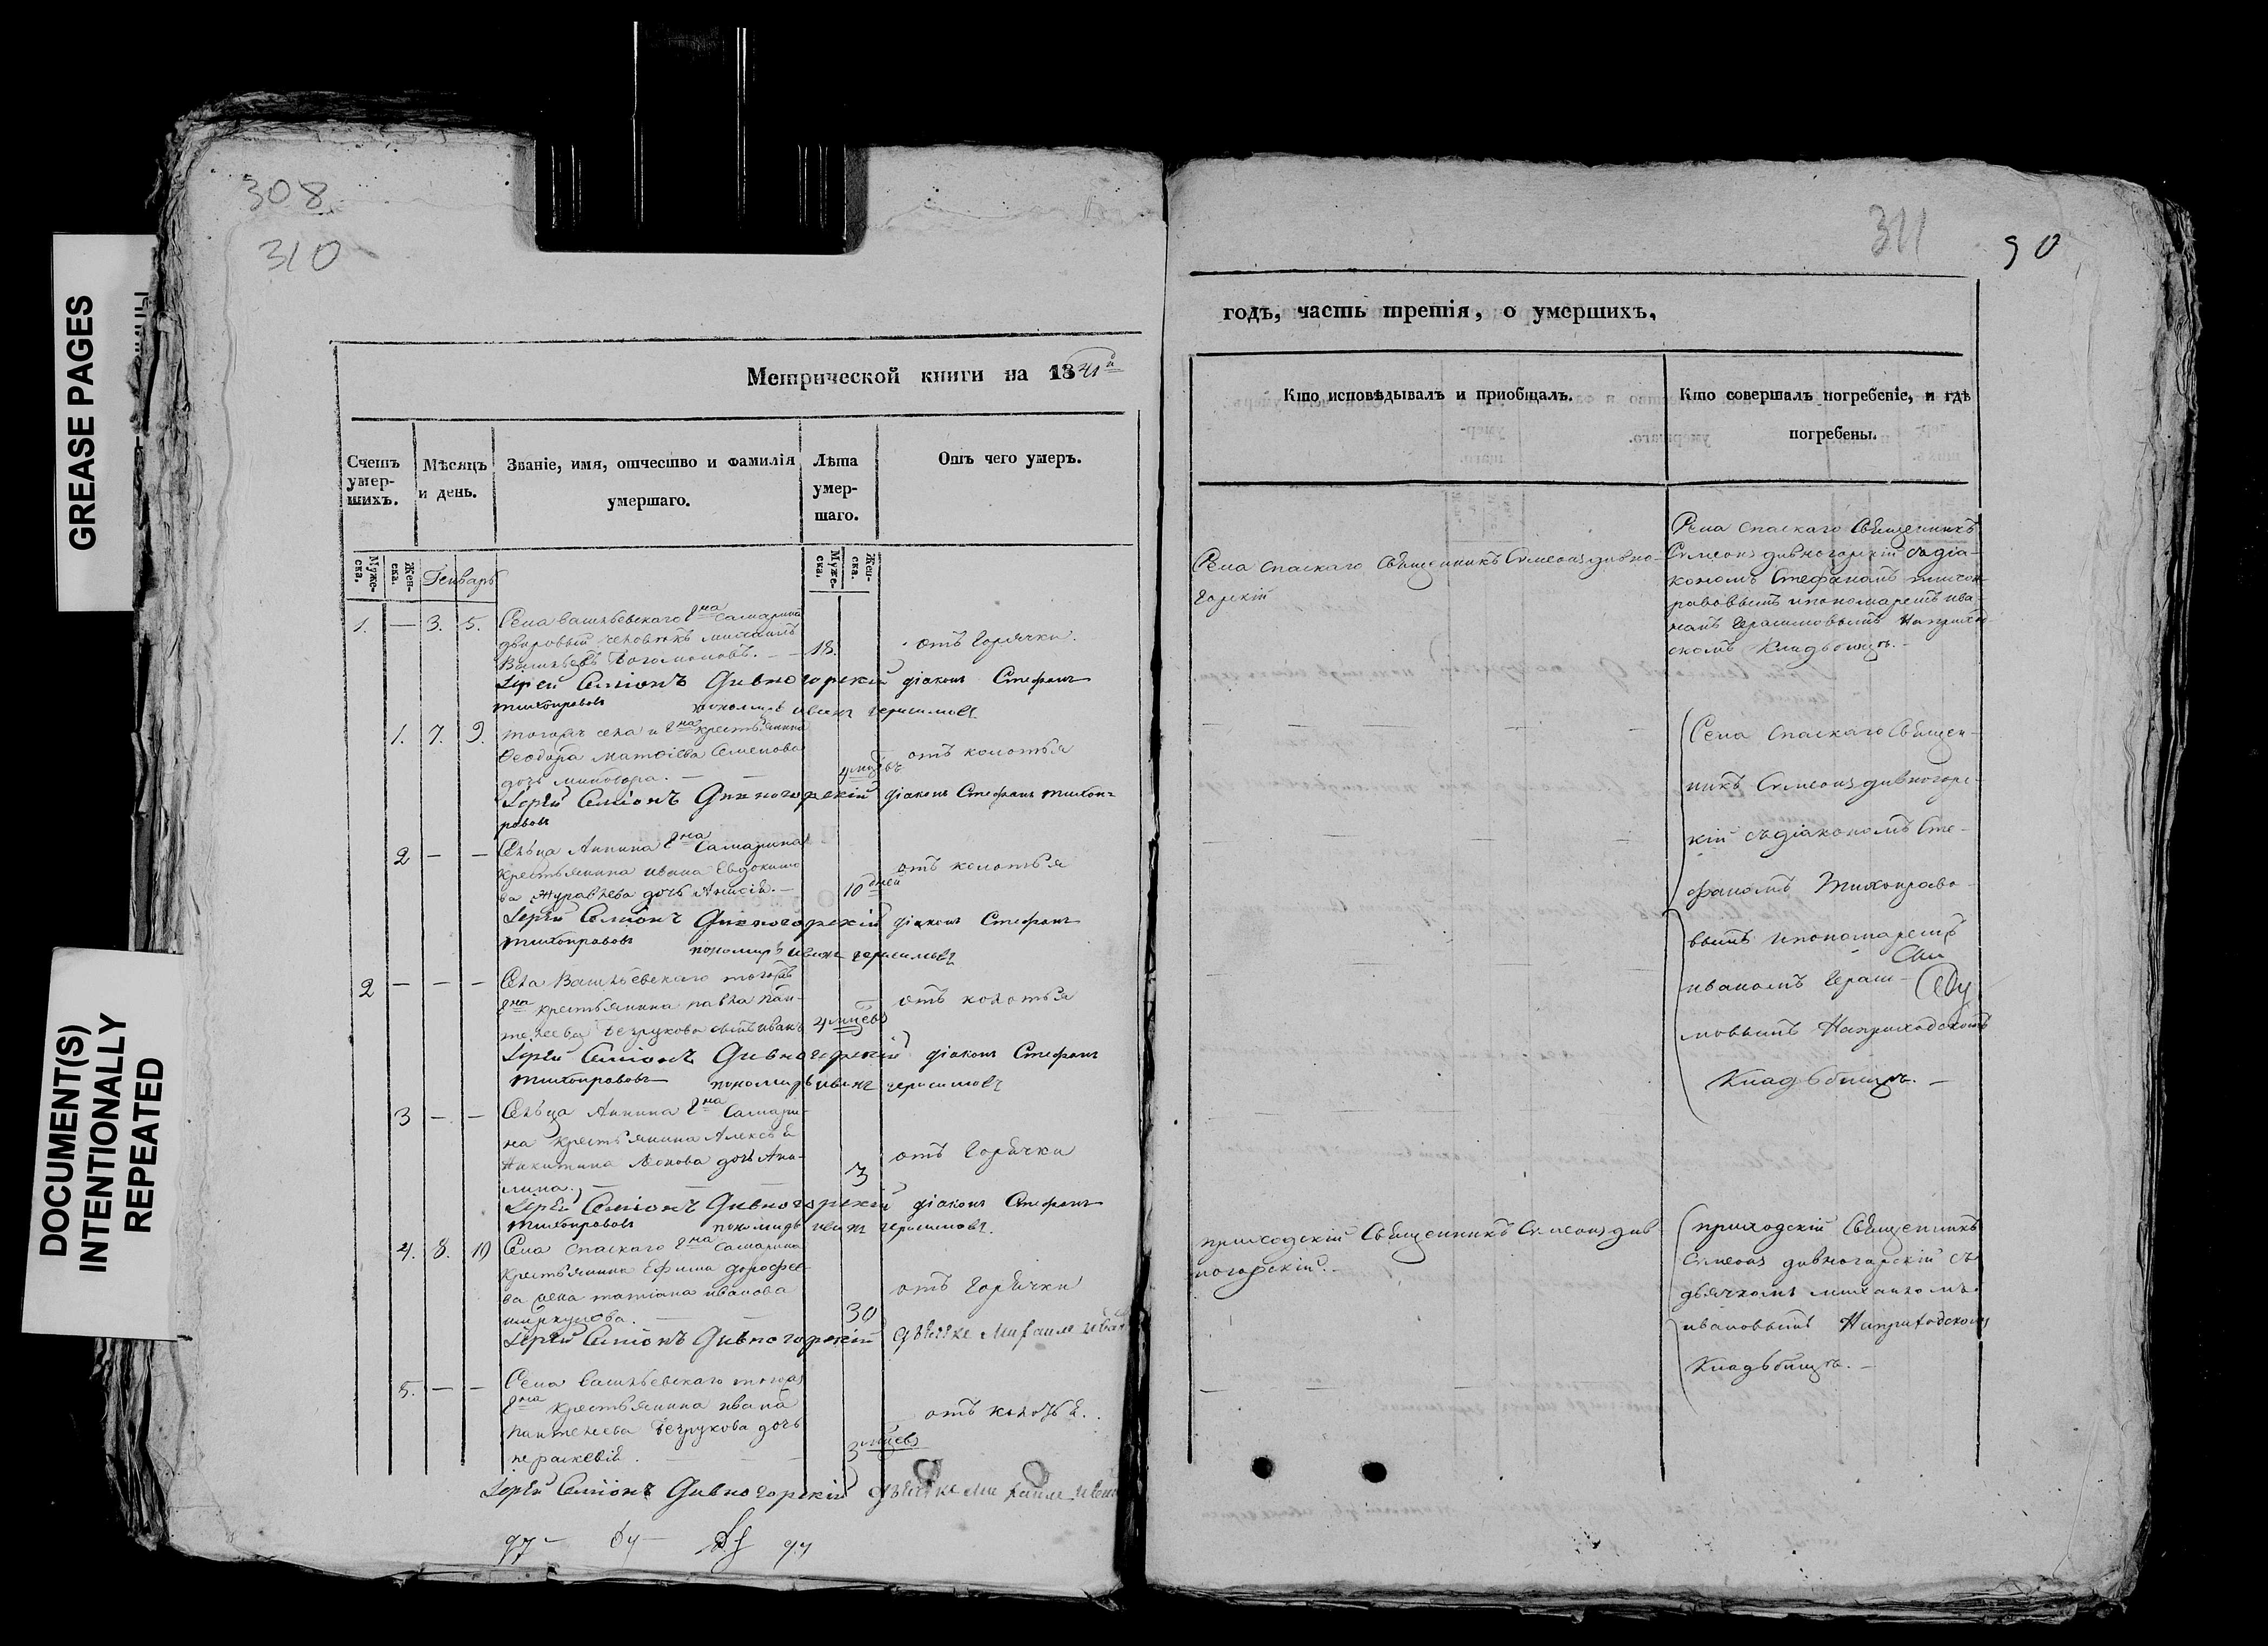 308
310
GREASE PAGES
DOCUMENT(S)
INTENTIONALLY
REPEATED
Метрической книги на 1841й
Счетъ умер-шихъ.
Мѣсяцъ и день.
Званіе, имя, отчество и фамилія умершаго.
Лѣта умер-шаго.
Отъ чего умеръ.
Муже-ска.
Жен-ска.
Генварь
Муже-ска.
Жен-ска.
1. — 3. 5.
Села Васильевскаго Гна Самарина
дворовый человѣкъ михаилъ
Васильевъ — 18. отъ Горячки.
Іерей Симіонъ Дивногорскій діаконъ Стефанъ
Тихонравовъ пономарь иванъ герасимовъ
1. 7. 9.
тогожъ села и Гна крестьянина
Ѳеодора матѳіева Семенова
дочь — 4 мцовъ отъ колотья
Іерей Симіонъ Дивногорскій діаконъ Стефанъ тихон-
равовъ
2 — —
Сельца Аннина Гна Самарина
крестьянина ивана Евдокимо
ва Журавлева дочь Анисія. — 10 дней отъ колотья
Іерей Симіонъ Дивногорскій діаконъ Стефанъ
Тихонравовъ пономарь иванъ герасимовъ
2 — — —
Села Васильевскаго тогожъ
Гна крестьянина павла пан-
телеева Безрукова сынъ иванъ 4 мцевъ отъ колотья
Іерей Симіонъ Дивногорскій діаконъ Стефанъ
Тихонравовъ пономарь иванъ герасимовъ
3 — —
Сельца Аннина Гна Самари-
на крестьянина Алексѣя
Никитина дочь Аки-
лина. — 3 отъ Горячки
Іерей Симіонъ Дивногорскій діаконъ Стефанъ
Тихонравовъ пономарь иванъ герасимовъ.
4. 8. 10
Села Спаскаго Гна Самарина
крестьянина Ефима дорофее-
ва жена татіана иванова
— 30 отъ Горячки
Іерей Симіонъ Дивногорскій дьячекъ Михаилъ Иван
5. — —
Села васильевскаго тогожъ
Гна крестьянина ивана
пантелеева Безрукова дочь
параскевія. — 3 мцевъ отъ колотья.
Іерей Симіонъ Дивногорскій дьячекъ Михаилъ Иван
311
90
годъ, часть третія, о умершихъ.
Кто исповѣдывалъ и пріобщалъ.
Кто совершалъ погребеніе, и гдѣ
погребены.
Села Спаскаго Священникъ Симеонъ дивно-
горскій
Села Спаскаго Священникъ
Симеонъ дивногорскій съ діа-
кономъ Стефаномъ тихон-
равовымъ и пономаремъ ива
номъ Герасимовымъ На приход
скомъ Кладьбищѣ. —
Села Спаскаго Священ-
никъ Симеонъ дивногорс-
кій съ діакономъ Сте-
фаномъ Тихонраво-
вымъ и пономаремъ
иваномъ Гераси-
мовымъ На приходскомъ
Кладьбищѣ. —
приходскій Священникъ Симеонъ див-
ногорскій. —
приходскій Священникъ
Симеонъ дивногорскій съ
дьячкомъ михаиломъ
ивановымъ На приходскомъ
Кладьбищѣ. —